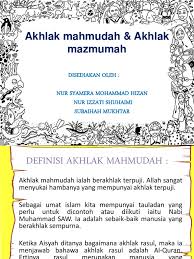 Akhlak mahmudah & Akhlak
mazmumah
DISEDIAKAN OLEH :
NUR SYAMERA MOHAMMAD HIZAN
NUR IZZATI SHUHAIMI
SUBAIHAH MUKHTAR
DEFINISI AKHLAK MAHMUDAH :
Akhlak mahmudah ialah berakhlak terpuji. Allah sangat
menyukai hambanya yang mempunyai akhlak terpuji.
Sebagai umat islam kita mempunyai tauladan yang
perlu untuk dicontoh atau diikuti iaitu Nabi
Muhammad SAW. Ia adalah sebaik-baik manusia yang
berakhlak sempurna.
Ketika Aisyah ditanya bagaimana akhlak rasul, maka is
menjawab bahwa akhlak rasul adalah Al-Quran.